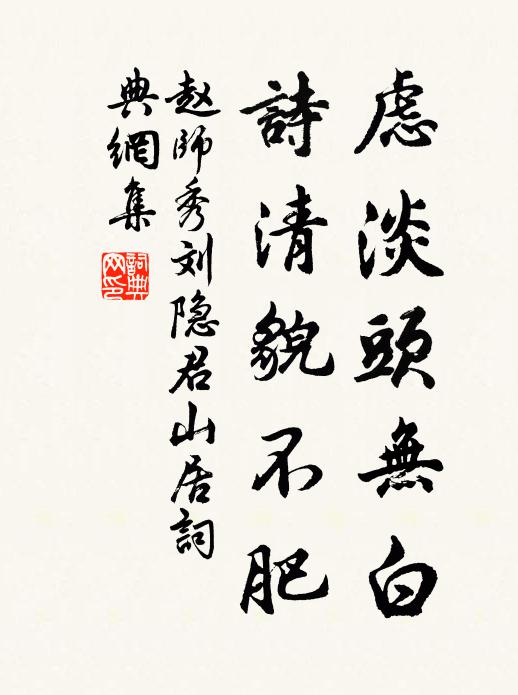 慮淡頭無白
詩清貌不肥
赵師秀刘隐君山居詞
典網集
詞典網印